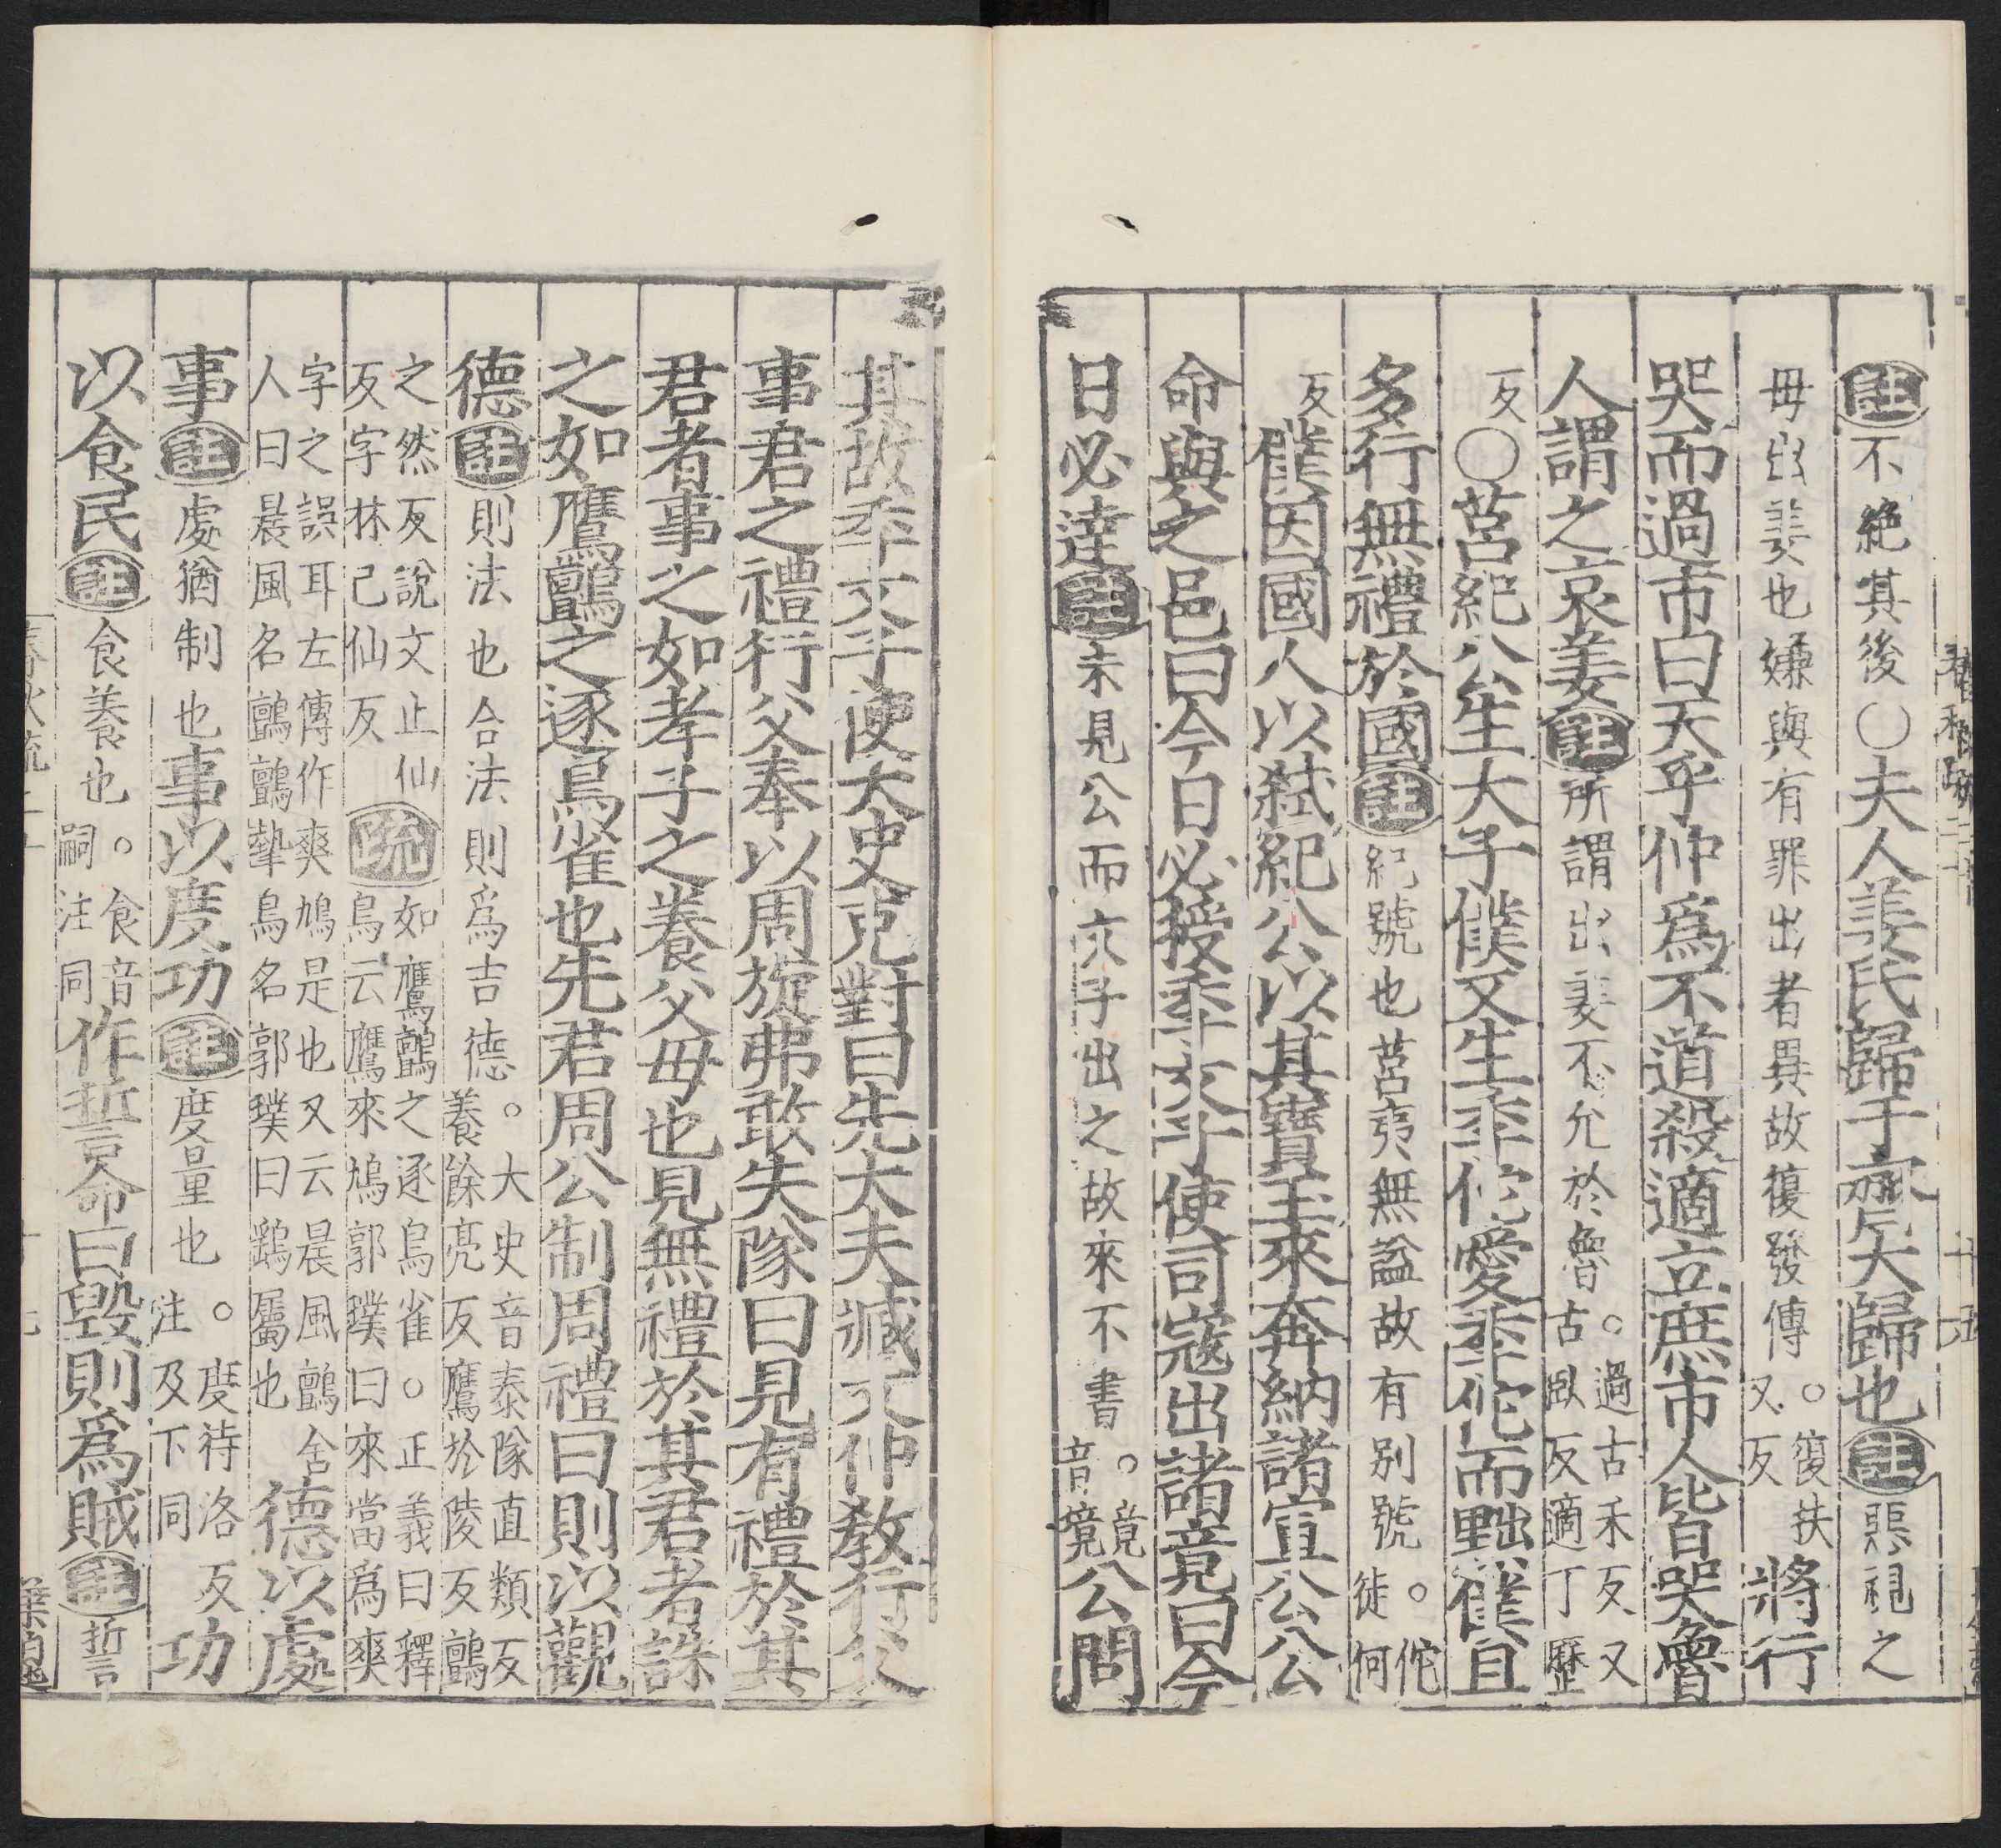 註不絶其後〇夫人姜氏歸于齊大歸也註惡視之
母出姜也嫌與有罪出者異故復發傳。復扶又反將行
哭而過市曰天乎仲爲不道殺適立庶市人皆哭魯
人謂之哀姜註所謂出姜不允於魯。過古禾反又古臥反適丁歷
反〇莒紀公生大子僕又生季佗愛季佗而黜僕且
多行無禮於國註紀號也莒夷無謚故有别號。佗徒何
反僕因國人以弑紀公以其寶玉來奔納諸宣公公
命與之邑曰今日必授季文子使司寇出諸竟曰今
日必達註未見公而文子出之故來不書。竟音境公問
其故季文子使大史克對曰先大夫臧文仲教行父
事君之禮行父奉以周旋弗敢失隊曰見有禮於其
君者事之如孝子之養父母也見無禮於其君者誅
之如鷹鸇之逐鳥雀也先君周公制周禮曰則以觀
德註則法也合法則爲吉德。大史音泰隊直類反養餘亮反鷹於陵反鸇
之然反說文止仙反字林己仙反疏如鷹鸇之逐鳥雀〇正義曰釋鳥云鷹來鳩郭璞曰來當爲爽
字之誤耳左傳作爽鳩是也又云晨風鸇舍人曰晨風名鸇鸇摯鳥名郭璞曰鷂屬也德以處
事註處猶制也事以度功註度量也。度待洛反注及下同功
以食民註食養也。食音嗣注同作誓命曰毀則爲賊註誓